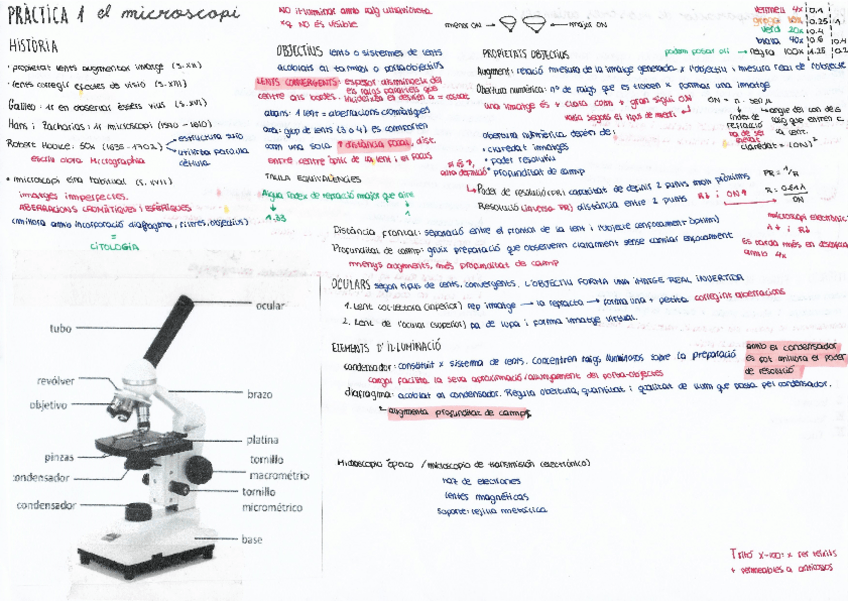 PRÀCTICA 1 el microscopi
HISTÒRIA
· propietat lents augmentar imatge (s.XII)
· lents corregir efectes de visió (s.XIII)
Galileo: 1r en observar éssers vius (s.XVII)
Hans i Zacharias: 1r microscopi (1590-1610)
Robert Hooke: 50x (1635-1702)
estructura suro
utilitza paraula cèl·lula
escriu obra Micrographia
· microscopi eina habitual (s.XVII)
imatges imperfectes.
ABERRACIONS CROMÀTIQUES I ESFÈRIQUES
(millora amb incorporació diafragma, filtres, objectius)
=
CITOLOGIA
NO il·luminar amb raig ultraviolats
xq NO és visible
OBJECTIUS lents o sistemes de lents
acoblats al tambor o portaobjectius
LENTS CONVERGENTS: espesor disminueix del
centre als bordes.
els rajos paral·lels que
incideixen es desvien a = costat
abans: 1 lent = aberracions cromàtiques
ara: grup de lents (3 o 4) es comporten
com una sola
distància focal, dist.
entre centre òptic de la lent i el focus
TAULA EQUIVALÈNCIES
Aigua índex de refracció major que aire
1,33
1
menor ON
major ON
PROPIETATS OBJECTIUS
vermell 4x 0.1
groga 10x 0.25
verd 20x 0.4
blava 40x 0.6
negra 100x 1.25
podem posar oli
Augment: relació mesura de la imatge generada x l'objectiu i mesura real de l'objecte
Obertura numèrica: nº de raigs que es recullen x formar una imatge
una imatge és + clara com + gran sigui ON
ON = n · sen μ
varia segons el tipus de medi
índex de
refracció
angle del con dels
raig que entren a
la lent.
claredat = (ON)²
obertura numèrica depèn de:
· claredat imatges
· poder resolutiu
· profunditat de camp
Poder de resolució (PR): capacitat de definir 2 punts molt pròxims
PR = 1/R
Resolució (inversa PR) distància entre 2 punts
R↓ i ON↑
R = 0.61λ
ON
Distància frontal: separació entre el frontal de la lent i l'objecte (enfocament òptim)
microscopi electrònic
λ↓ i R↓
Profunditat de camp: gruix preparació que observem clarament sense canviar enfocament
menys augments, més profunditat de camp
amb 4x
OCULARS segon tipus de lents, convergents. L'OBJECTIU FORMA UNA IMATGE REAL INVERTIDA
1. Lent col·lectora (inferior) rep imatge → la refracta → forma una + petita corregint aberracions
2. Lent de l'ocular (superior) fa de lupa i forma imatge virtual.
ELEMENTS D'IL·LUMINACIÓ
condensador: constituït x sistema de lents. Concentren raigs lluminosos sobre la preparació
cargol facilita la seva aproximació/allunyament del porta-objectes
amb el condensador
es pot millorar el poder
de resolució
diafragma: acoblat al condensador. Regula obertura, quantitat i qualitat de llum que passa pel condensador.
augmenta profunditat de camp
Microscopio óptico / microscopio de transmisión (electrónico)
haz de electrones
lentes magnéticas
soporte: rejilla metálica
tubo
ocular
revólver
brazo
objetivo
platina
pinzas
tornillo
macrométrico
condensador
tornillo
micrométrico
condensador
base
Tritó X-100: x fer teixits
+ permeables a anticossos